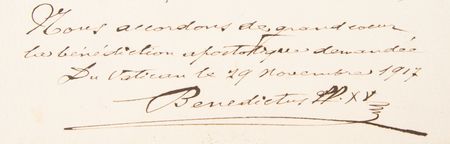 Nous accordons de grand coeur
la bénédiction apostolique demandée
Du Vatican le 29 novembre 1917
Benedictus PP. XV